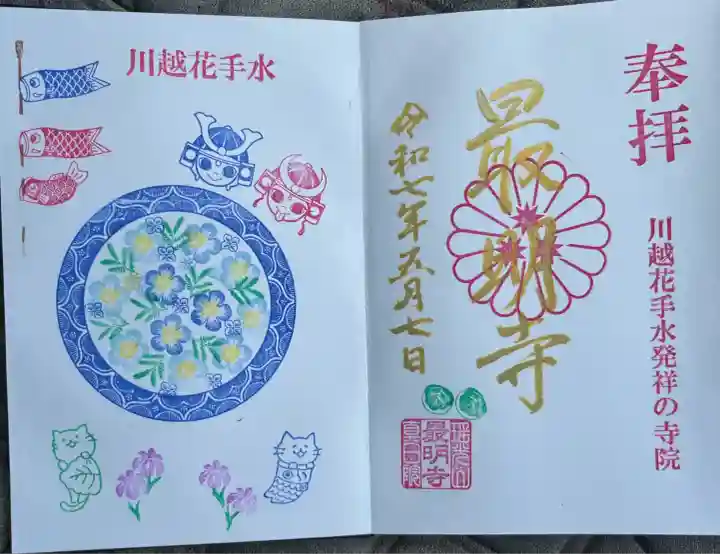 川越花手水
奉拝
川越花手水発祥の寺院
最明寺
令和七年五月七日
最明寺